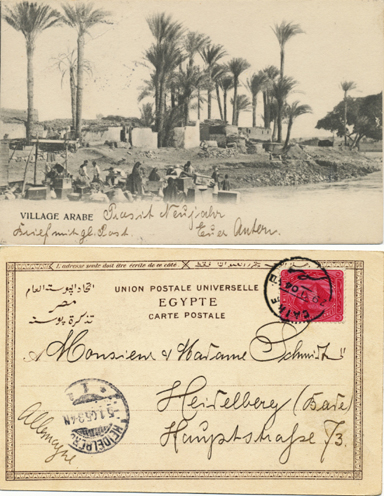 VILLAGE ARABE Prosit Neujahr
Brief mit gl. Post. Euer Anton.
L'adresse seule doit être écrite de ce côté.
اتحاد البوستة العام
مصر
تذكرة بوستة
UNION POSTALE UNIVERSELLE
EGYPTE
CARTE POSTALE
CAIRE
Monsieur & Madame Schmidt
Heidelberg (Bade)
Hauptstraße 73.
Allemagne
HEIDELBERG
5.1.05.3-4N